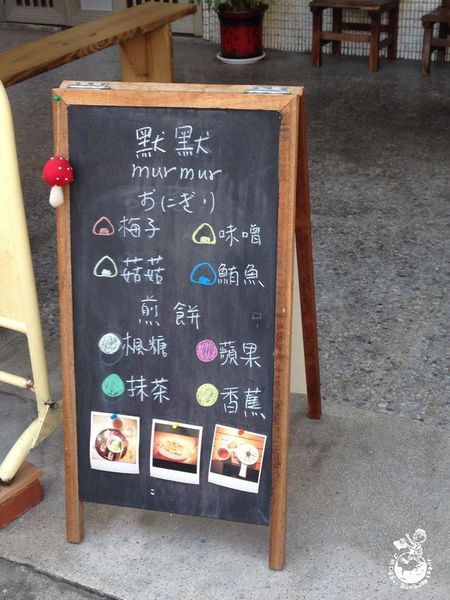 默默
murmur
おにぎり
梅子 味噌
菇菇 鮪魚
煎餅
楓糖 蘋果
抹茶 香蕉